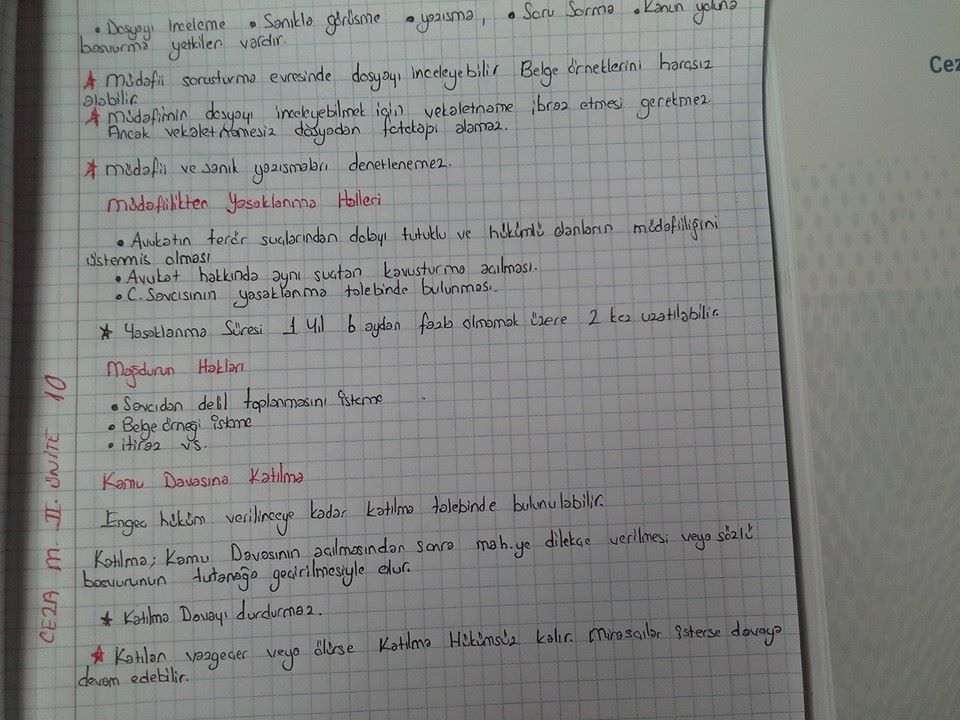 • Dosyayı inceleme • Sanıkla görüşme • yazışma, • Soru Sorma • Kanun yoluna
başvurma yetkileri vardır.
★ müdafii soruşturma evresinde dosyayı inceleyebilir Belge örneklerini harçsız
alabilir.
★ müdafiinin dosyayı inceleyebilmek için vekaletname ibraz etmesi gerekmez
Ancak vekaletnamesiz dosyadan fotokopi alamaz.
★ müdafii ve sanık yazışmaları denetlenemez.
müdafiilikten Yasaklanma Halleri
• Avukatın terör suçlarından dolayı tutuklu ve hükümlü olanların müdafiiliğini
üstlenmiş olması
• Avukat hakkında aynı suçtan kovuşturma açılması.
• C. Savcısının yasaklanma talebinde bulunması.
★ Yasaklanma Süresi 1 Yıl 6 aydan fazla olmamak üzere 2 kez uzatılabilir.
Mağdurun Hakları
• Savcıdan delil toplanmasını isteme
• Belge örneği isteme
• itiraz vs.
Kamu Davasına Katılma
Engeç hüküm verilinceye kadar katılma talebinde bulunulabilir.
Katılma; Kamu Davasının açılmasından sonra mah.ye dilekçe verilmesi veya sözlü
başvurunun tutanağa geçirilmesiyle olur.
★ Katılma Davayı durdurmaz.
★ Katılan vazgeçer veya ölürse Katılma Hükümsüz kalır. mirasçılar isterse davaya
devam edebilir.
CEZA M. II. ÜNİTE 10
Cez